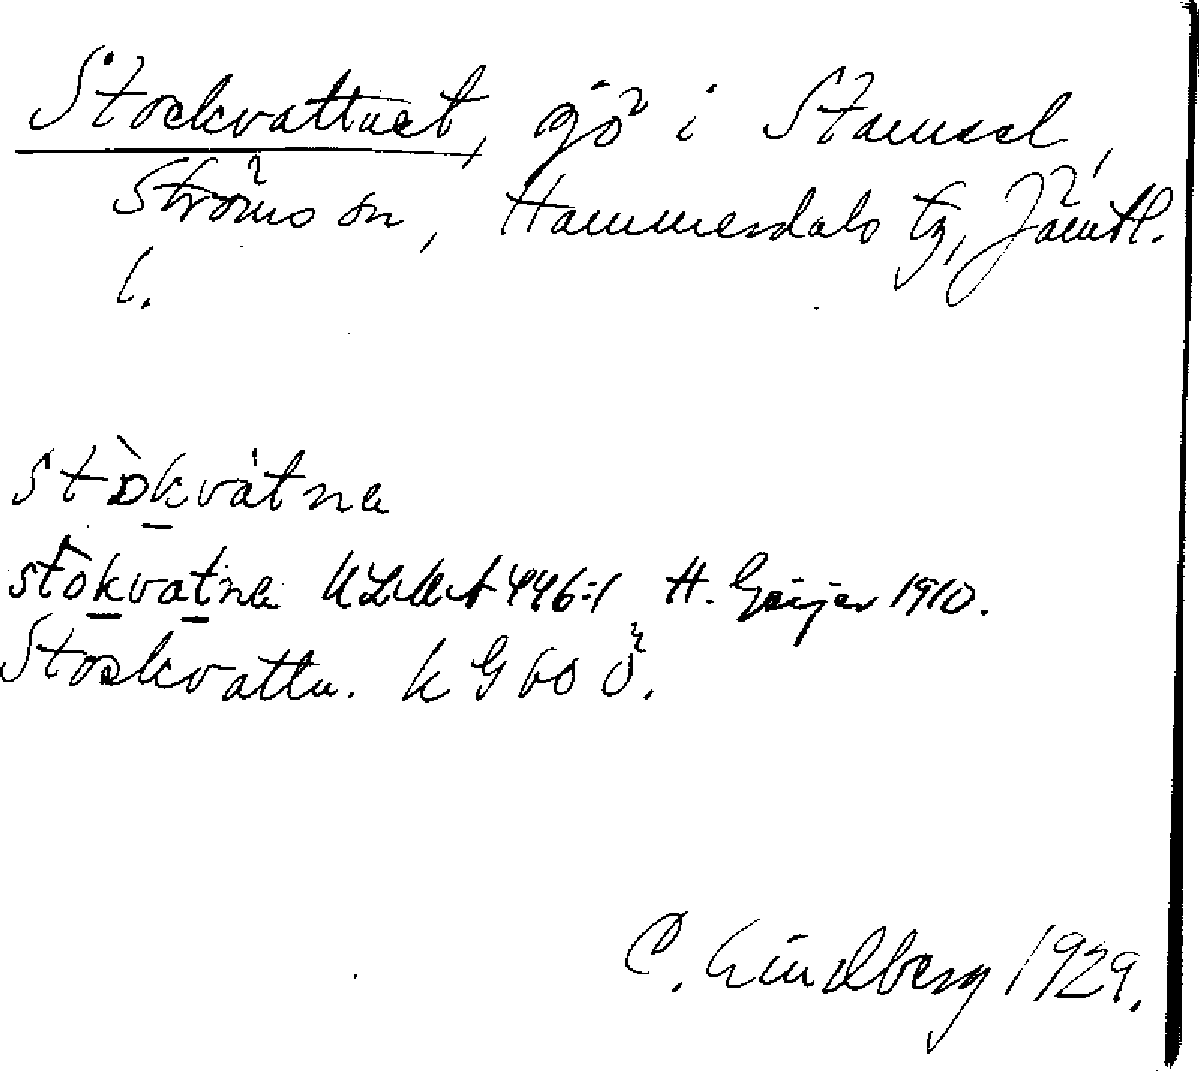 Stockvattnet, sjö i Stamsel,
Ströms sn, Hammerdals tg, Jämtl.
l.
stòkvàtna
stòkvatna ULMA 446:1 H. Geijer 1910.
Stockvattn. k G 60 ö.
C. Lindberg 1929.